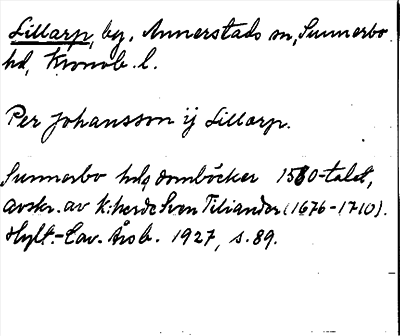 Lillarp, by, Annerstads sn, Sunnerbo
hd, Kronob. l.
Per Johansson ij Lillarp.
Sunnerbo hds domböcker 1580-talet,
avskr. av k:herde Sven Tiliander (1676-1710).
Hylt.-Cav. Årsb. 1927, s. 89.